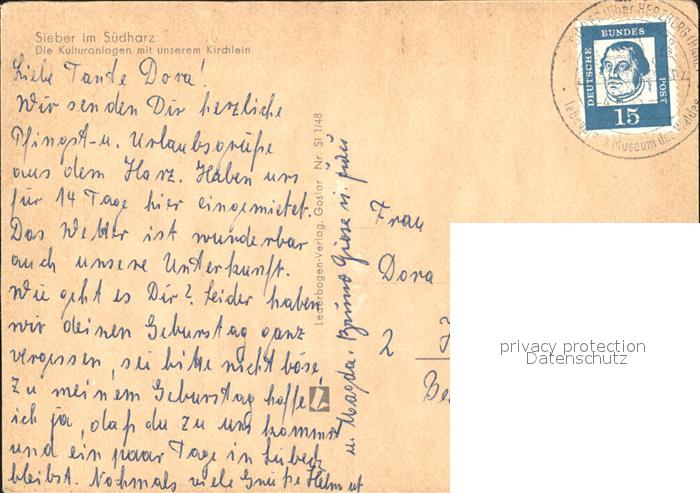 Sieber im Südharz
Die Kulturanlagen mit unserem Kirchlein
Liebe Tante Dora!
Wir senden Dir herzliche
Pfingst- u. Urlaubsgrüße
aus dem Harz. Haben uns
für 14 Tage hier eingemietet.
Das Wetter ist wunderbar
auch unsere Unterkunft.
Wie geht es Dir? Leider haben
wir deinen Geburstag ganz
vergessen, sei bitte nicht böse!
Zu meinem Geburstag hoffe
ich ja, daß du zu uns kommst
und ein paar Tage in Lübeck
bleibst. Nochmals viele Grüße Helmut
u. Magda. Bruno Giese u.
Lederbogen-Verlag, Goslar Nr. SI 1/48
DEUTSCHE BUNDES POST
15
über HERZBERG
Museum
Frau
Dora
2
privacy protection
Datenschutz